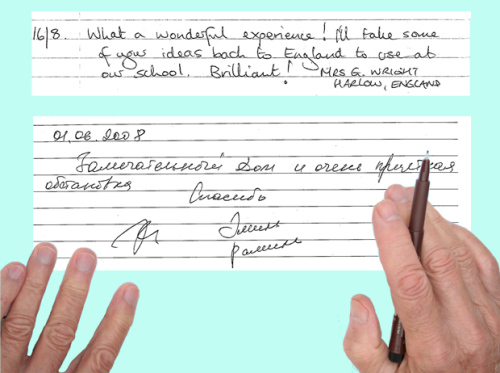 16/8. What a wonderful experience! I'll take some
of your ideas back to England to use at
our school. Brilliant! MRS G. WRIGHT
MARLOW, ENGLAND
01.06.2008
Замечательный Дом и очень приятная
обстановка
Спасибо